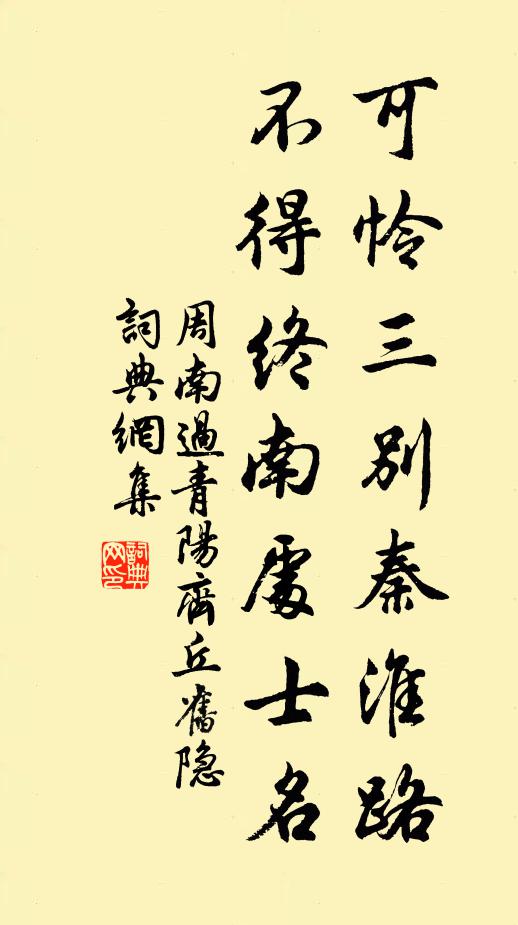 可怜三别秦淮路
不得终南處士名
周南過青陽齊丘舊隐
詞典網集
詞典网印